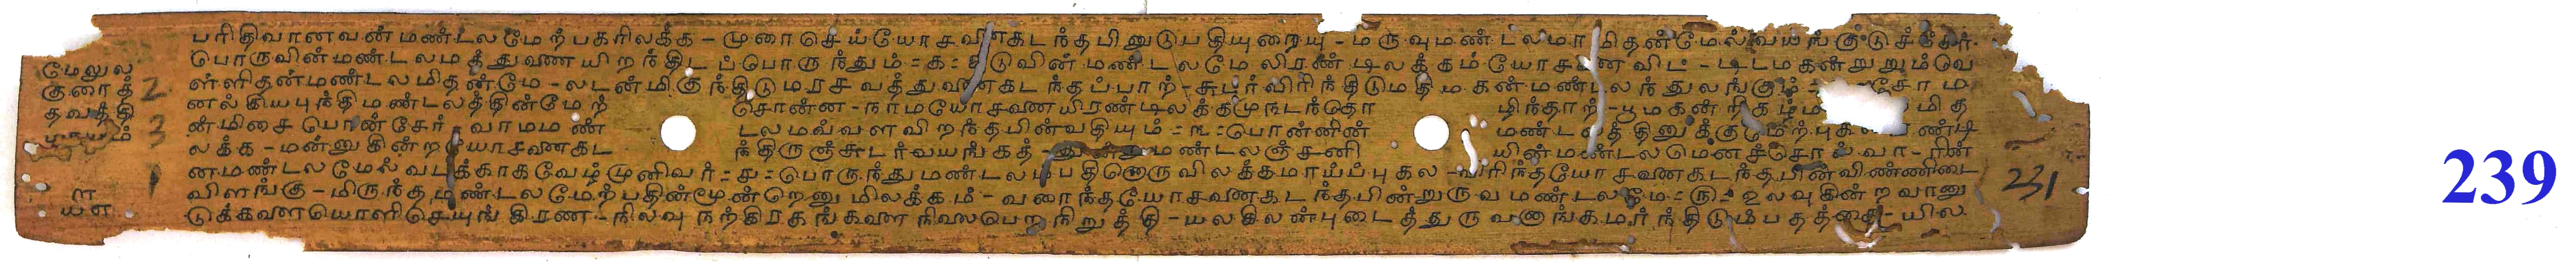 பரிதிவானவன் மண்டலமேற்பகரிலக்க - முரைசெய்யோசனைகடந்தபினுடுபதியுறையு - மருவுமண்டலமா மிதன்மேல்வயங்குடுச்சேர்
பொருவின்மண்டலமத்துவணயிறந்திடப்பொருந்தும் = க = உடுவின் மண்டலமேலிரண்டிலக்கம்யோசனைவிட் - டிடமகன்றுறும்வெ
ள்ளிதன்மண்டலமிதன்மே - லடன்மிகுந்திடுமரசவத்துவணகடந்தப்பாற் - சுடர்விரிந்திடுமதிமகன்மண்டலந்துலங்கும் = சோம
னல்கியபுந்திமண்டலத்தின்மேற் சொன்ன - நாமயோசனையிரண்டிலக்கமுநடந்தா ழிந்தாற் - பூமகன்றிகழ்ம மித
ன்மிசை பொன்சேர் வாமமண் டலமவ்வளவிறந்தபின்வதியும் = ௩ = பொன்னின் மண்டலத்தினுக்கு மேற்புக ண்டி
லக்க - மன்றுகின்ற யோசனைகட ந்திருஞ்சுடர்வயங்கத் - மண்டலஞ்சனி யின்மண்டலமெனச்சொல்வா - ரின்
னமண்டலமேல்வடக்காகவேழ்முனிவர் = ௪ = பொருந்துமண்டலம்பதினொருவிலக்கமாய்ப்புகல - விரிந்தயோசனைகடந்தபின்விண்ணிடை
விளங்கு - மிருந்தமண்டலமேற்பதின்மூன்றெனுமிலக்கம் - வரைந்தயோசனைகடந்தபின்றுருவமண்டலமே = ௫ = உலவுகின்றவானு
டுக்களையொளிசெயுங்கிரண - நிலவுநற்கிரகங்களைநிலைபெறநிறுத்தி - யலகிலன்புடைத்துருவனாங்கமர்ந்திடும்பதத்தை - யில
மேலுல
குரைத்
தவத்தி
2
3
1
231
239